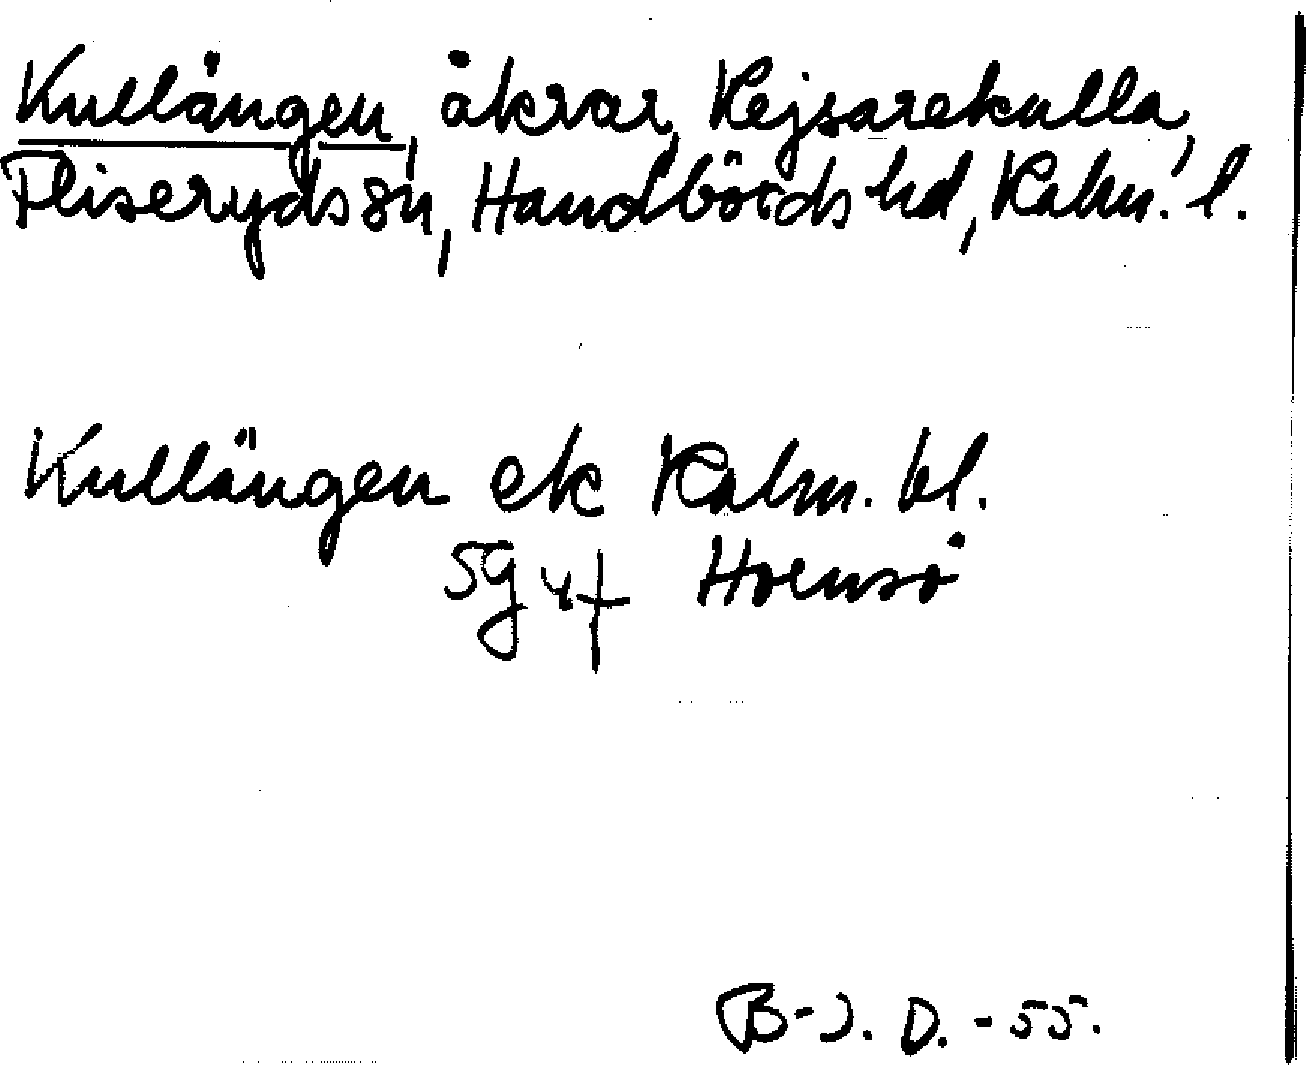 Kullängen, åkrar, Kejsarekulla,
Fliseryds sn, Handbörds hd, Kalm. l.
Kullängen ek Kalm. bl.
5g Hornsö
B-J. D. -55.